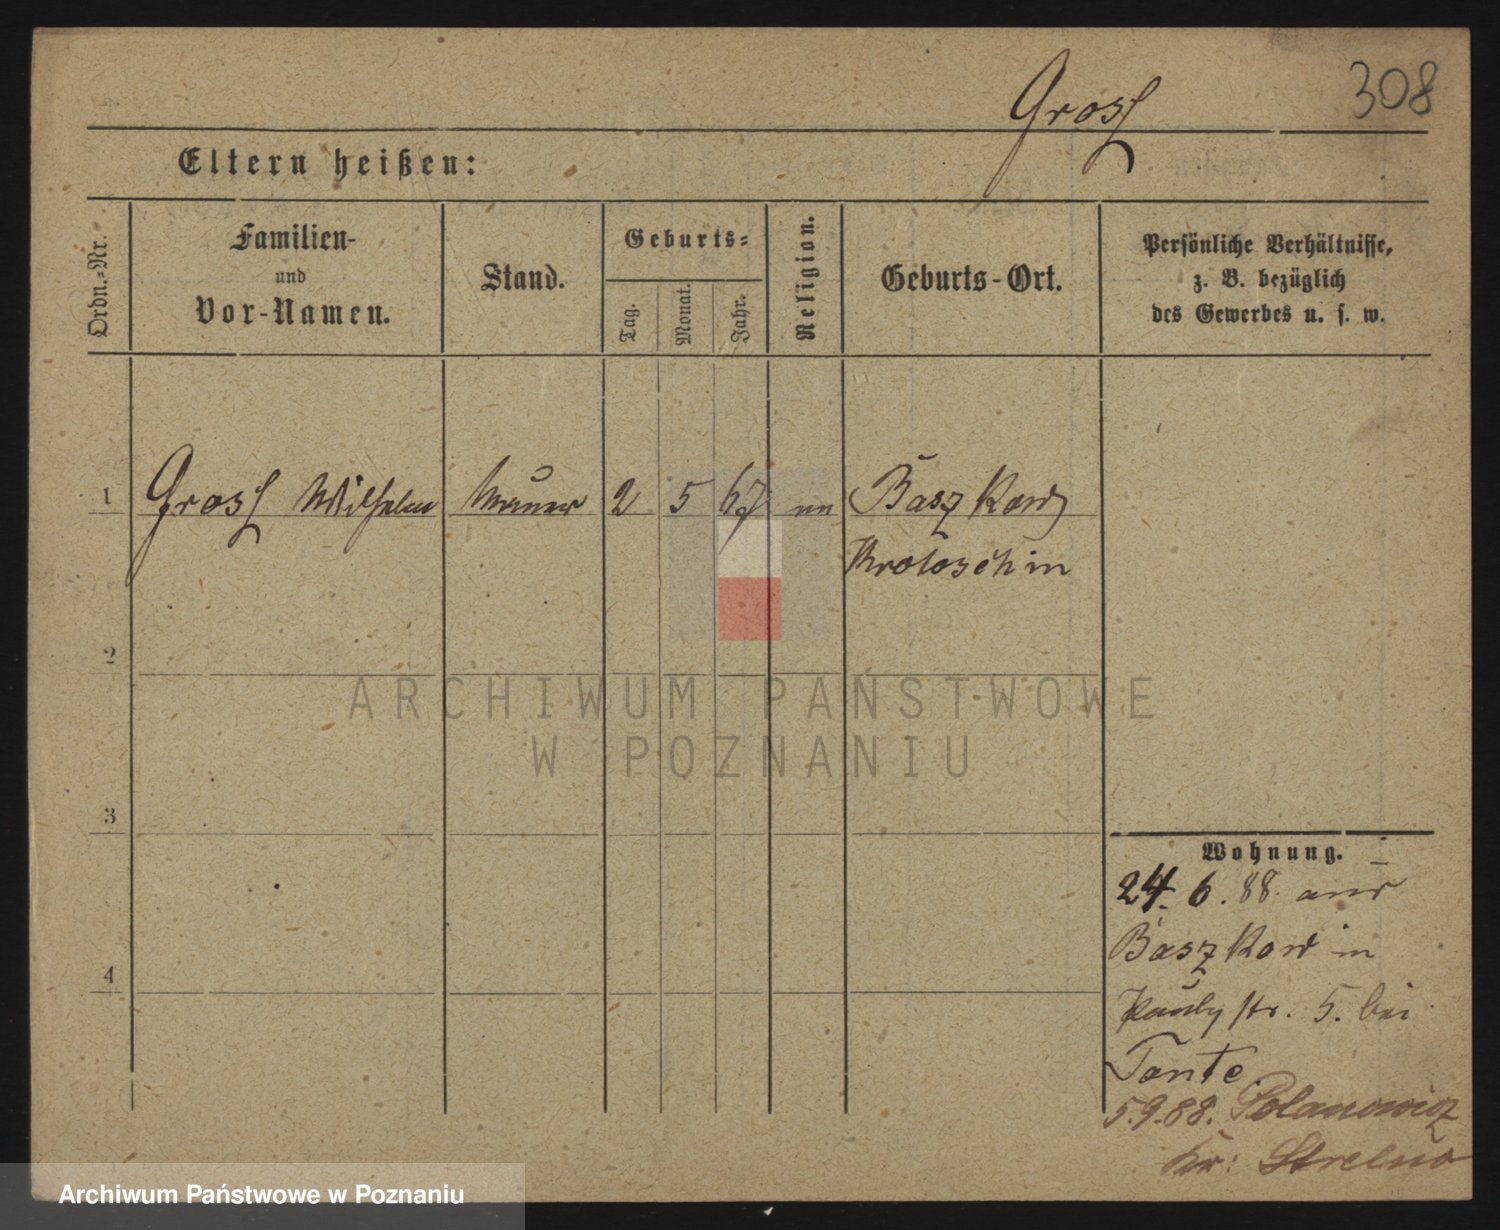 308
Grosz
Eltern heißen:
Ordn.=Nr.
Familien-
und
Vor-Namen.
Stand.
Geburts=
Tag.
Monat.
Jahr.
Religion.
Geburts-Ort.
Persönliche Verhältnisse,
z. B. bezüglich
des Gewerbes u. s. w.
1 Grosz Wilhelm Maurer 2 5 67 Baszkow
Krotoschin
2
3
4
ARCHIWUM PAŃSTWOWE
W POZNANIU
Wohnung.
24. 6. 88. aus
Baszkow in
str. 5. bei
Tante
5.9.88. Polanowicz
Kr: Strelno
Archiwum Państwowe w Poznaniu